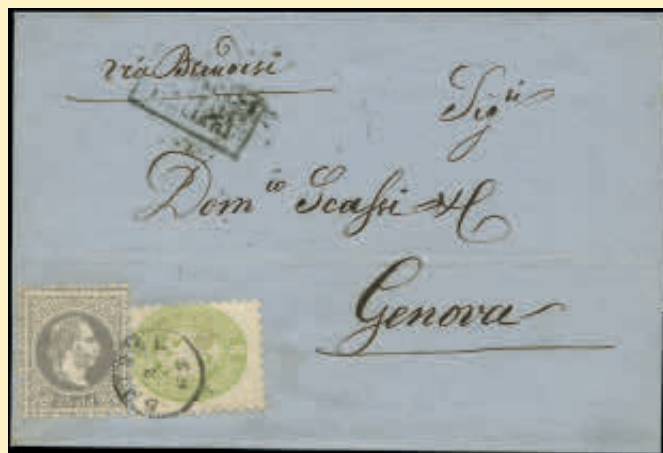 via Brindisi
Sig.ri
Dom.co Scassi & C
Genova